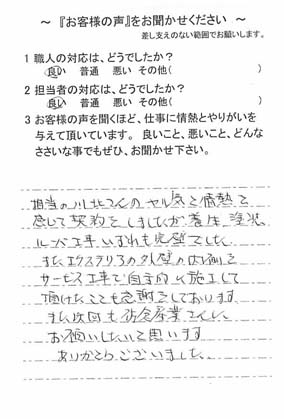 ～『お客様の声』をお聞かせください～
差し支えのない範囲でお願いします。
1 職人の対応は、どうでしたか？
良い 普通 悪い その他( )
2 担当者の対応は、どうでしたか？
良い 普通 悪い その他( )
3 お客様の声を聞くほど、仕事に情熱とやりがいを
与えて頂いています。良いこと、悪いこと、どんな
ささいな事でもぜひ、お聞かせ下さい。
担当の川北さんのヤル気と情熱を
感じて契約をしましたが、養生、塗装、
工事いずれも完璧でした。
また、エクステリアの外壁の内側を
サービス工事で自主的に施工して
頂けたことも感謝をしております。
また次回も 産業さんに
お願いしたいと思います
ありがとうございました。